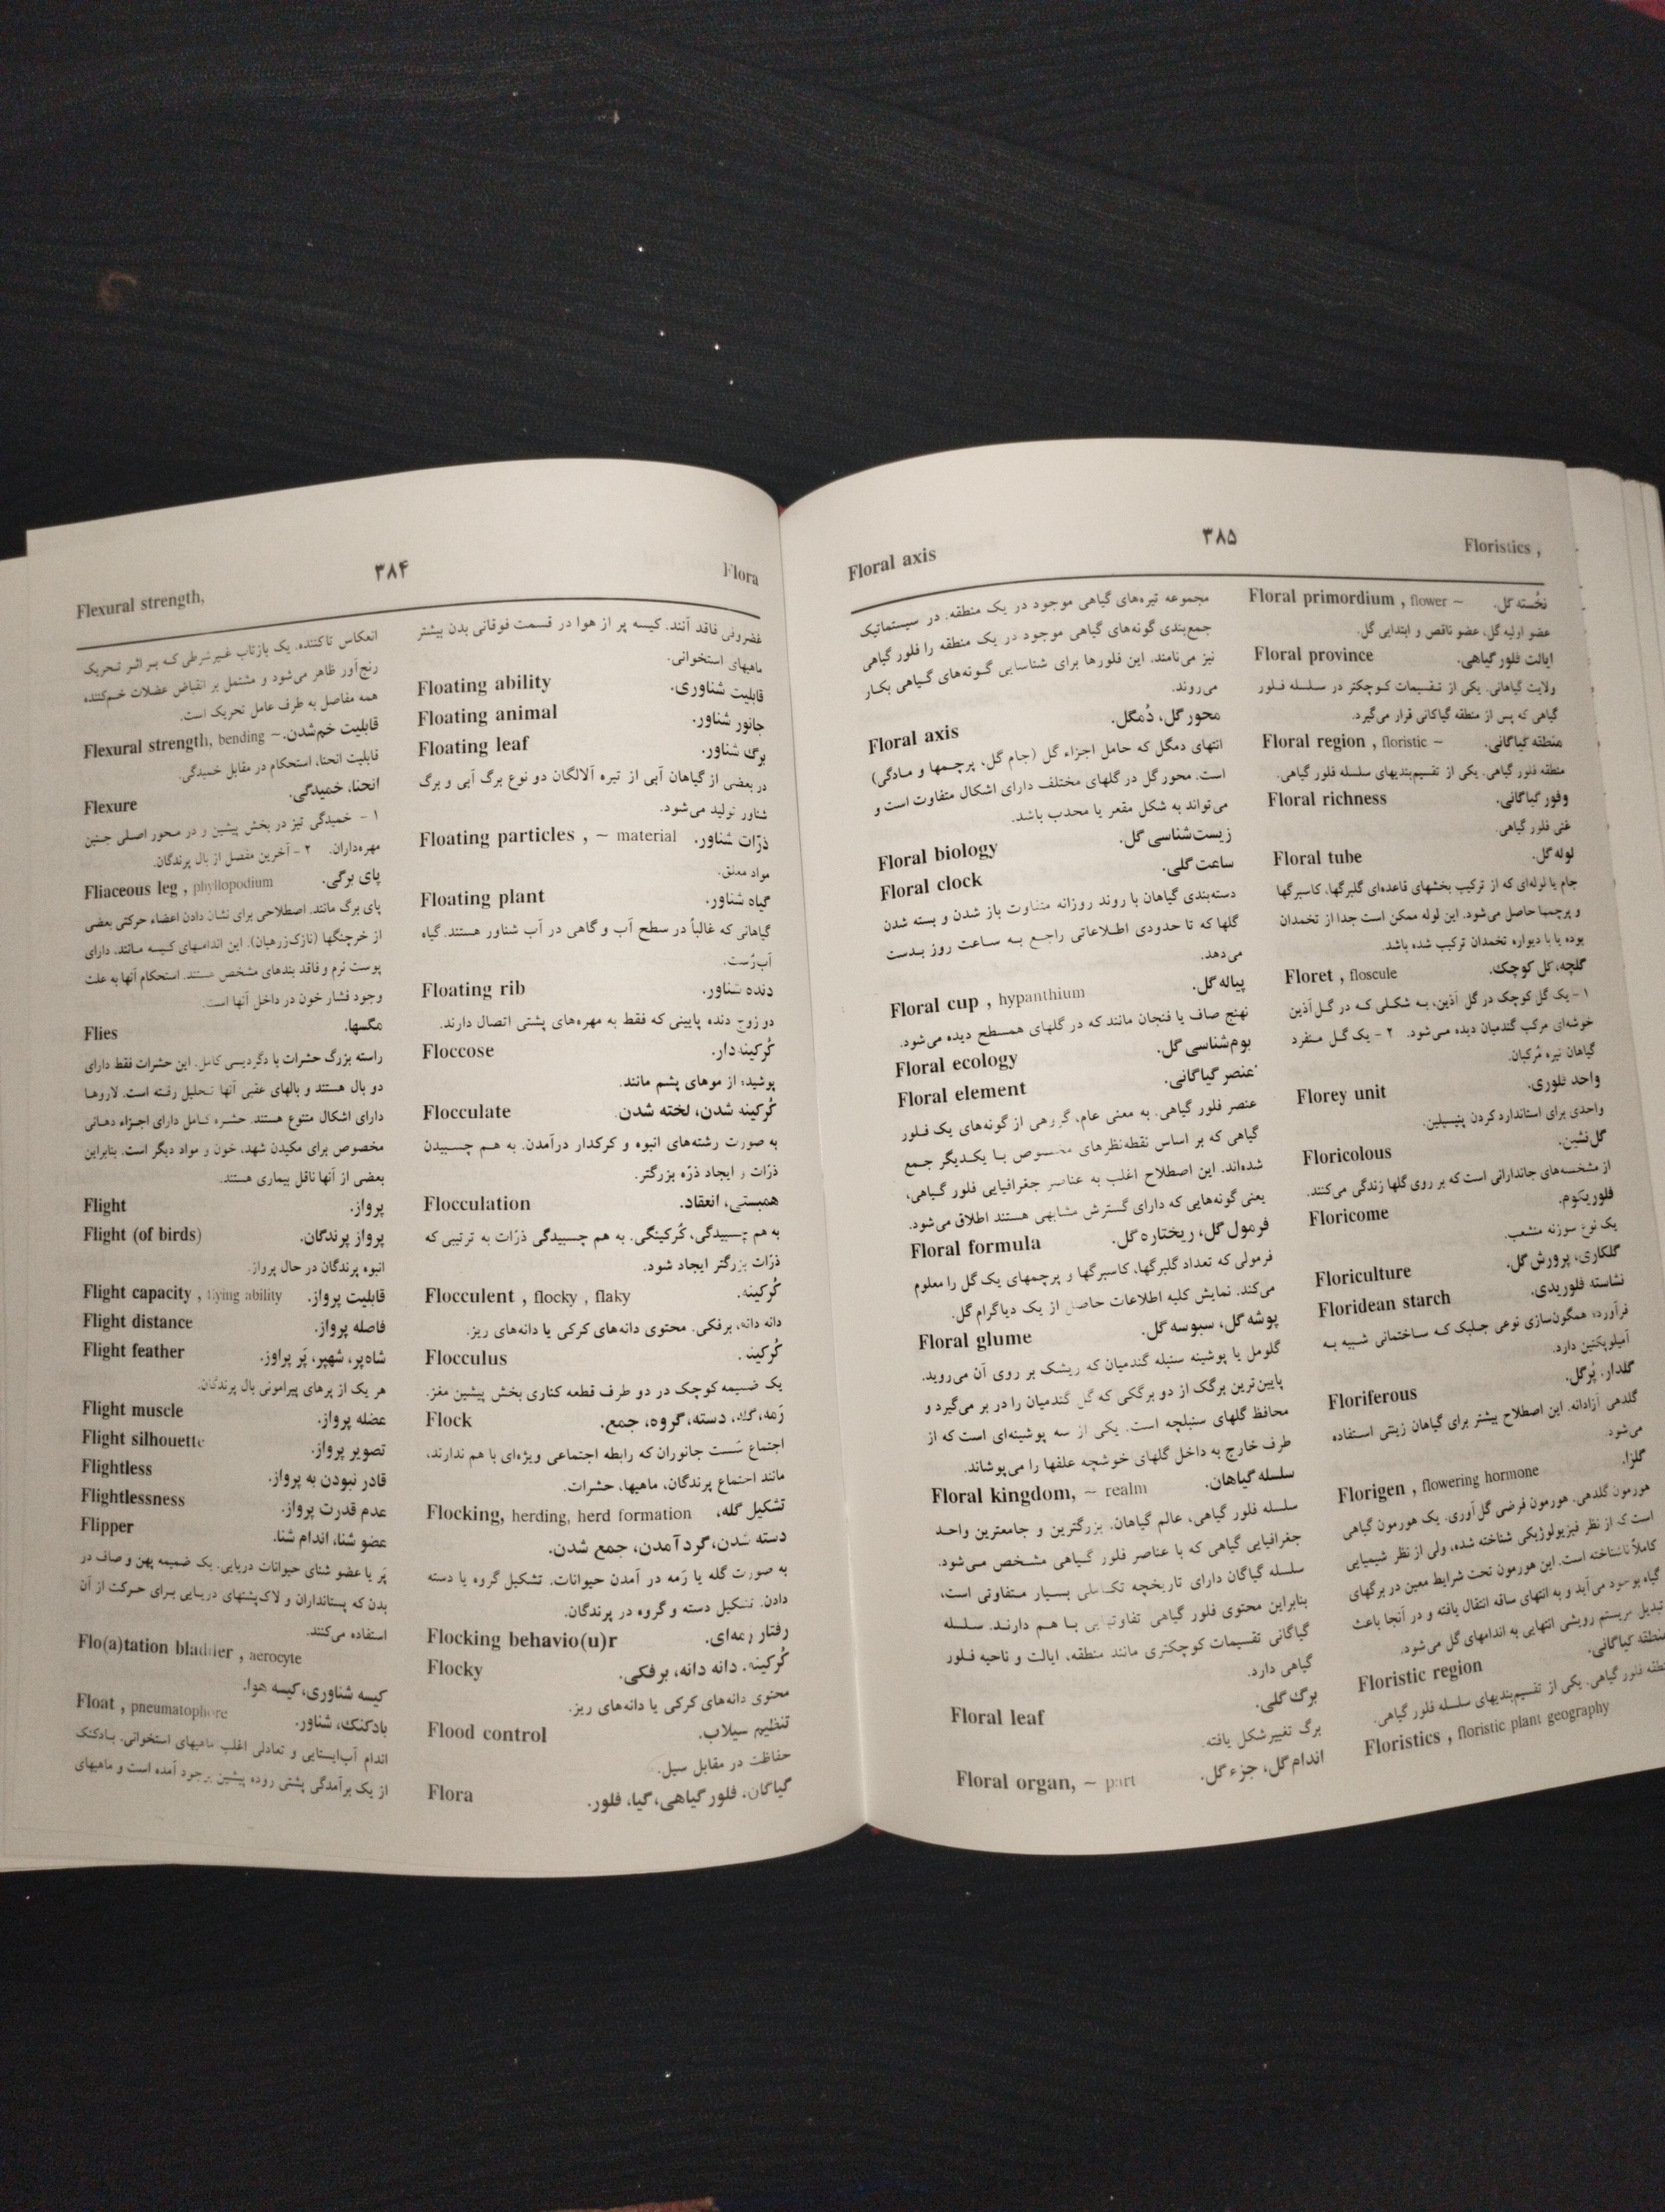 Flexural strength,
۳۸۴
Flora
انعکاس تاکننده. یک بازتاب غیرشرطی که بر اثر تحریک
رنج‌آور ظاهر می‌شود و مشتمل بر انقباض عضلات خم‌کننده
همه مفاصل به طرف عامل تحریک است.
Flexural strength, bending ~ قابلیت خم‌شدن.
قابلیت انحنا، استحکام در مقابل خمیدگی.
Flexure انحنا، خمیدگی.
۱ - خمیدگی تیز در بخش پیشین و در محور اصلی جنین
مهره‌داران. ۲ - آخرین مفصل از بال پرندگان.
Fliaceous leg , phyllopodium پای برگی.
پای برگ مانند. اصطلاحی برای نشان دادن اعضاء حرکتی بعضی
از خرچنگها (نازک‌زرهیان). این اندامهای کیسه مانند، دارای
پوست نرم و فاقد بندهای مشخص هستند. استحکام آنها به علت
وجود فشار خون در داخل آنها است.
Flies مگسها.
راسته بزرگ حشرات با دگردیسی کامل. این حشرات فقط دارای
دو بال هستند و بالهای عقبی آنها تحلیل رفته است. لاروها
دارای اشکال متنوع هستند. حشره کامل دارای اجزاء دهانی
مخصوص برای مکیدن شهد، خون و مواد دیگر است. بنابراین
بعضی از آنها ناقل بیماری هستند.
Flight پرواز.
Flight (of birds) پرواز پرندگان.
انبوه پرندگان در حال پرواز.
Flight capacity , flying ability قابلیت پرواز.
Flight distance فاصله پرواز.
Flight feather شاه‌پر، شهپر، پَر پراوز.
هر یک از پرهای پیرامونی بال پرندگان.
Flight muscle عضله پرواز.
Flight silhouette تصویر پرواز.
Flightless قادر نبودن به پرواز.
Flightlessness عدم قدرت پرواز.
Flipper عضو شنا، اندام شنا.
پَر یا عضو شنای حیوانات دریایی. یک ضمیمه پهن و صاف در
بدن که پستانداران و لاک‌پشتهای دریایی برای حرکت از آن
استفاده می‌کنند.
Flo(a)tation bladder , aerocyte
کیسه شناوری، کیسه هوا.
Float , pneumatophore بادکنک، شناور.
اندام آب‌ایستایی و تعادلی اغلب ماهیهای استخوانی. بادکنک
از یک برآمدگی پشتی روده پیشین بوجود آمده است و ماهیهای
غضروفی فاقد آنند. کیسه پر از هوا در قسمت فوقانی بدن بیشتر
ماهیهای استخوانی.
Floating ability قابلیت شناوری.
Floating animal جانور شناور.
Floating leaf برگ شناور.
در بعضی از گیاهان آبی از تیره آلالگان دو نوع برگ آبی و برگ
شناور تولید می‌شود.
Floating particles , ~ material ذرّات شناور.
مواد معلق.
Floating plant گیاه شناور.
گیاهانی که غالباً در سطح آب و گاهی در آب شناور هستند. گیاه
آب‌رُست.
Floating rib دنده شناور.
دو زوج دنده پایینی که فقط به مهره‌های پشتی اتصال دارند.
Floccose کُرکینه‌دار.
پوشیده از موهای پشم مانند.
Flocculate کُرکینه شدن، لخته شدن.
به صورت رشته‌های انبوه و کرکدار درآمدن. به هم چسبیدن
ذرّات و ایجاد ذرّه بزرگتر.
Flocculation همبستی، انعقاد.
به هم چسبیدگی، کُرکینگی. به هم چسبیدگی ذرّات به ترتیبی که
ذرّات بزرگتر ایجاد شود.
Flocculent , flocky , flaky کُرکینه.
دانه دانه، برفکی. محتوی دانه‌های کرکی یا دانه‌های ریز.
Flocculus کُرکینه.
یک ضمیمه کوچک در دو طرف قطعه کناری بخش پیشین مغز.
Flock رَمه، گله، دسته، گروه، جمع.
اجتماع سُست جانوران که رابطه اجتماعی ویژه‌ای با هم ندارند،
مانند اجتماع پرندگان، ماهیها، حشرات.
Flocking, herding, herd formation تشکیل گله،
دسته شدن، گرد آمدن، جمع شدن.
به صورت گله یا رَمه در آمدن حیوانات. تشکیل گروه یا دسته
دادن. تشکیل دسته و گروه در پرندگان.
Flocking behavio(u)r رفتار رمه‌ای.
Flocky کُرکینه. دانه دانه، برفکی.
محتوی دانه‌های کرکی یا دانه‌های ریز.
Flood control تنظیم سیلاب.
حفاظت در مقابل سیل.
Flora گیاگان، فلور گیاهی، گیا، فلور.
Floral axis
۳۸۵
Floristics ,
مجموعه تیره‌های گیاهی موجود در یک منطقه. در سیستماتیک
جمع‌بندی گونه‌های گیاهی موجود در یک منطقه را فلور گیاهی
نیز می‌نامند. این فلورها برای شناسایی گونه‌های گیاهی بکار
می‌روند.
Floral axis محور گل، دُمگل.
انتهای دمگل که حامل اجزاء گل (جام گل، پرچمها و مادگی)
است. محور گل در گلهای مختلف دارای اشکال متفاوت است و
می‌تواند به شکل مقعر یا محدب باشد.
Floral biology زیست‌شناسی گل.
Floral clock ساعت گلی.
دسته‌بندی گیاهان با روند روزانه متفاوت باز شدن و بسته شدن
گلها که تا حدودی اطلاعاتی راجع به ساعت روز بدست
می‌دهد.
Floral cup , hypanthium پیاله گل.
نهنج صاف یا فنجان مانند که در گلهای همسطح دیده می‌شود.
Floral ecology بوم‌شناسی گل.
Floral element عنصر گیاگانی.
عنصر فلور گیاهی. به معنی عام، گروهی از گونه‌های یک فلور
گیاهی که بر اساس نقطه‌نظرهای مخصوص با یکدیگر جمع
شده‌اند. این اصطلاح اغلب به عناصر جغرافیایی فلور گیاهی،
یعنی گونه‌هایی که دارای گسترش مشابهی هستند اطلاق می‌شود.
Floral formula فرمول گل، ریختاره گل.
فرمولی که تعداد گلبرگها، کاسبرگها و پرچمهای یک گل را معلوم
می‌کند. نمایش کلیه اطلاعات حاصل از یک دیاگرام گل.
Floral glume پوشه گل، سبوسه گل.
گلومل یا پوشینه سنبله گندمیان که ریشک بر روی آن می‌روید.
پایین‌ترین برگک از دو برگکی که گل گندمیان را در بر می‌گیرد و
محافظ گلهای سنبلچه است. یکی از سه پوشینه‌ای است که از
طرف خارج به داخل گلهای خوشچه علفها را می‌پوشاند.
Floral kingdom, ~ realm سلسله گیاهان.
سلسله فلور گیاهی، عالم گیاهان. بزرگترین و جامعترین واحد
جغرافیایی گیاهی که با عناصر فلور گیاهی مشخص می‌شود.
سلسله گیاگان دارای تاریخچه تکاملی بسیار متفاوتی است،
بنابراین محتوی فلور گیاهی تفاوتهایی با هم دارند. سلسله
گیاگانی تقسیمات کوچکتری مانند منطقه، ایالت و ناحیه فلور
گیاهی دارد.
Floral leaf برگ گلی.
برگ تغییرشکل یافته.
Floral organ, ~ part اندام گل، جزء گل.
Floral primordium , flower ~ نخُسته گل.
عضو اولیه گل، عضو ناقص و ابتدایی گل.
Floral province ایالت فلور گیاهی.
ولایت گیاهانی. یکی از تقسیمات کوچکتر در سلسله فلور
گیاهی که پس از منطقه گیاگانی قرار می‌گیرد.
Floral region , floristic ~ منطقه گیاگانی.
منطقه فلور گیاهی. یکی از تقسیم‌بندیهای سلسله فلور گیاهی.
Floral richness وفور گیاگانی.
غنی فلور گیاهی.
Floral tube لوله گل.
جام یا لوله‌ای که از ترکیب بخشهای قاعده‌ای گلبرگها، کاسبرگها
و پرچمها حاصل می‌شود. این لوله ممکن است جدا از تخمدان
بوده یا با دیواره تخمدان ترکیب شده باشد.
Floret , floscule گلچه، گل کوچک.
۱ - یک گل کوچک در گل آذین، به شکلی که در گل آذین
خوشه‌ای مرکب گندمیان دیده می‌شود. ۲ - یک گل منفرد
گیاهان تیره مُرکبان.
Florey unit واحد فلوری.
واحدی برای استاندارد کردن پنیسیلین.
Floricolous گل‌نشین.
از مشخصه‌های جاندارانی است که بر روی گلها زندگی می‌کنند.
Floricome فلوریکوم.
یک نوع سوزنه منشعب.
Floriculture گلکاری، پرورش گل.
Floridean starch نشاسته فلوریدی.
فرآورده همگون‌سازی نوعی جلبک که ساختمانی شبیه به
آمیلوپکتین دارد.
Floriferous گلدار، پُرگل.
گلدهی آزادانه. این اصطلاح بیشتر برای گیاهان زینتی استفاده
می‌شود.
Florigen , flowering hormone گلزا.
هورمون گلدهی. هورمون فرضی گل‌آوری. یک هورمون گیاهی
است که از نظر فیزیولوژیکی شناخته شده، ولی از نظر شیمیایی
کاملاً ناشناخته است. این هورمون تحت شرایط معین در برگهای
گیاه بوجود می‌آید و به انتهای ساقه انتقال یافته و در آنجا باعث
تبدیل مریستم رویشی انتهایی به اندامهای گل می‌شود.
Floristic region منطقه گیاگانی.
منطقه فلور گیاهی. یکی از تقسیم‌بندیهای سلسله فلور گیاهی.
Floristics , floristic plant geography